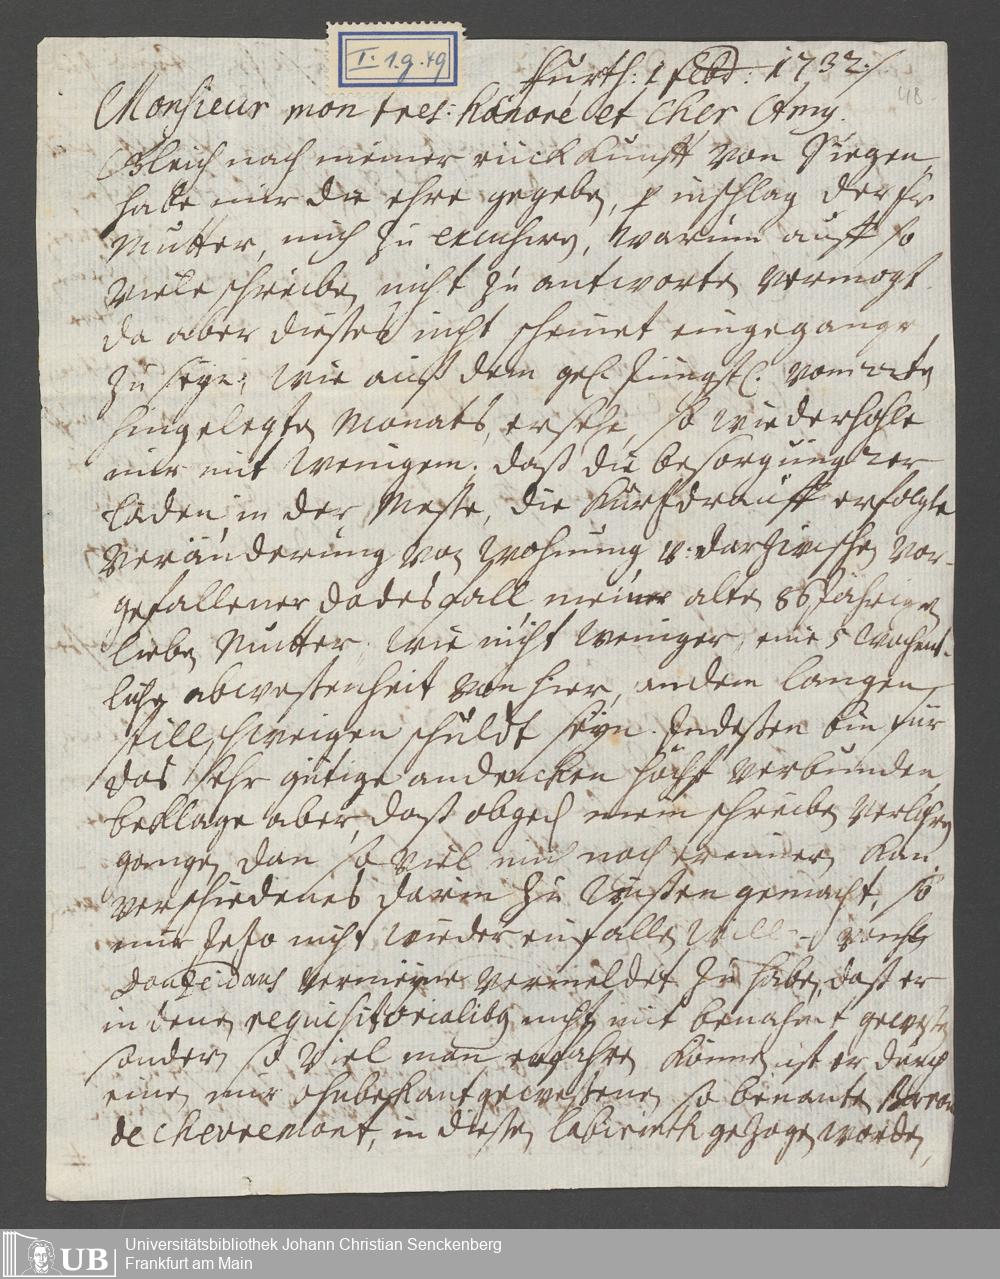 I. 1. g. 49
Furth: 1 Febr: 1732 /
48
Monsieur mon tres: honoré et cher Amy.
Gleich nach meiner rückkunfft von Siegen
habe mir die ehre gegeben, p inschlag der fr
Mutter, mich zu, warum auff so
viele schreiben nicht zu antworten vermogt.
da aber dießes nicht scheinet eingegangen
zu seyn; wie auß dem vom 22ten
hingelegten Monats, ersehe, so wiederhohle
mir mit wenigem. daß die besorgung der
laden in der Messe, die kurtz drauff erfolgte
veränderung von wohnung u. darzwischen vor-
gefallener dodesfall meiner alten 86 Jährigen
lieben Mutter, wie nicht weniger, eine 5 wochent-
liche abwesenheit von hier, an dem langen
stillschweigen schuldt seyn. Indeßen bin für
das sehr gütige andencken höchst verbunden,
beklage aber, daß obged mein schreiben verlohren
gangen, dan so viel mich noch erinnern kan
verschiedenes darin zu wissen gemacht, so
mir jetzo nicht wieder einfallen will
vermeine vermeldet zu haben, daß er
in denen requisitorialibq nicht mit benahmt geweßen
sondern so viel man erfahren können ist er durch
einen mir ohnbekant geweßenen so benanten Baron
de Chevremont, in dießen labirinth gezogen worden,
UB
Universitätsbibliothek Johann Christian Senckenberg
Frankfurt am Main